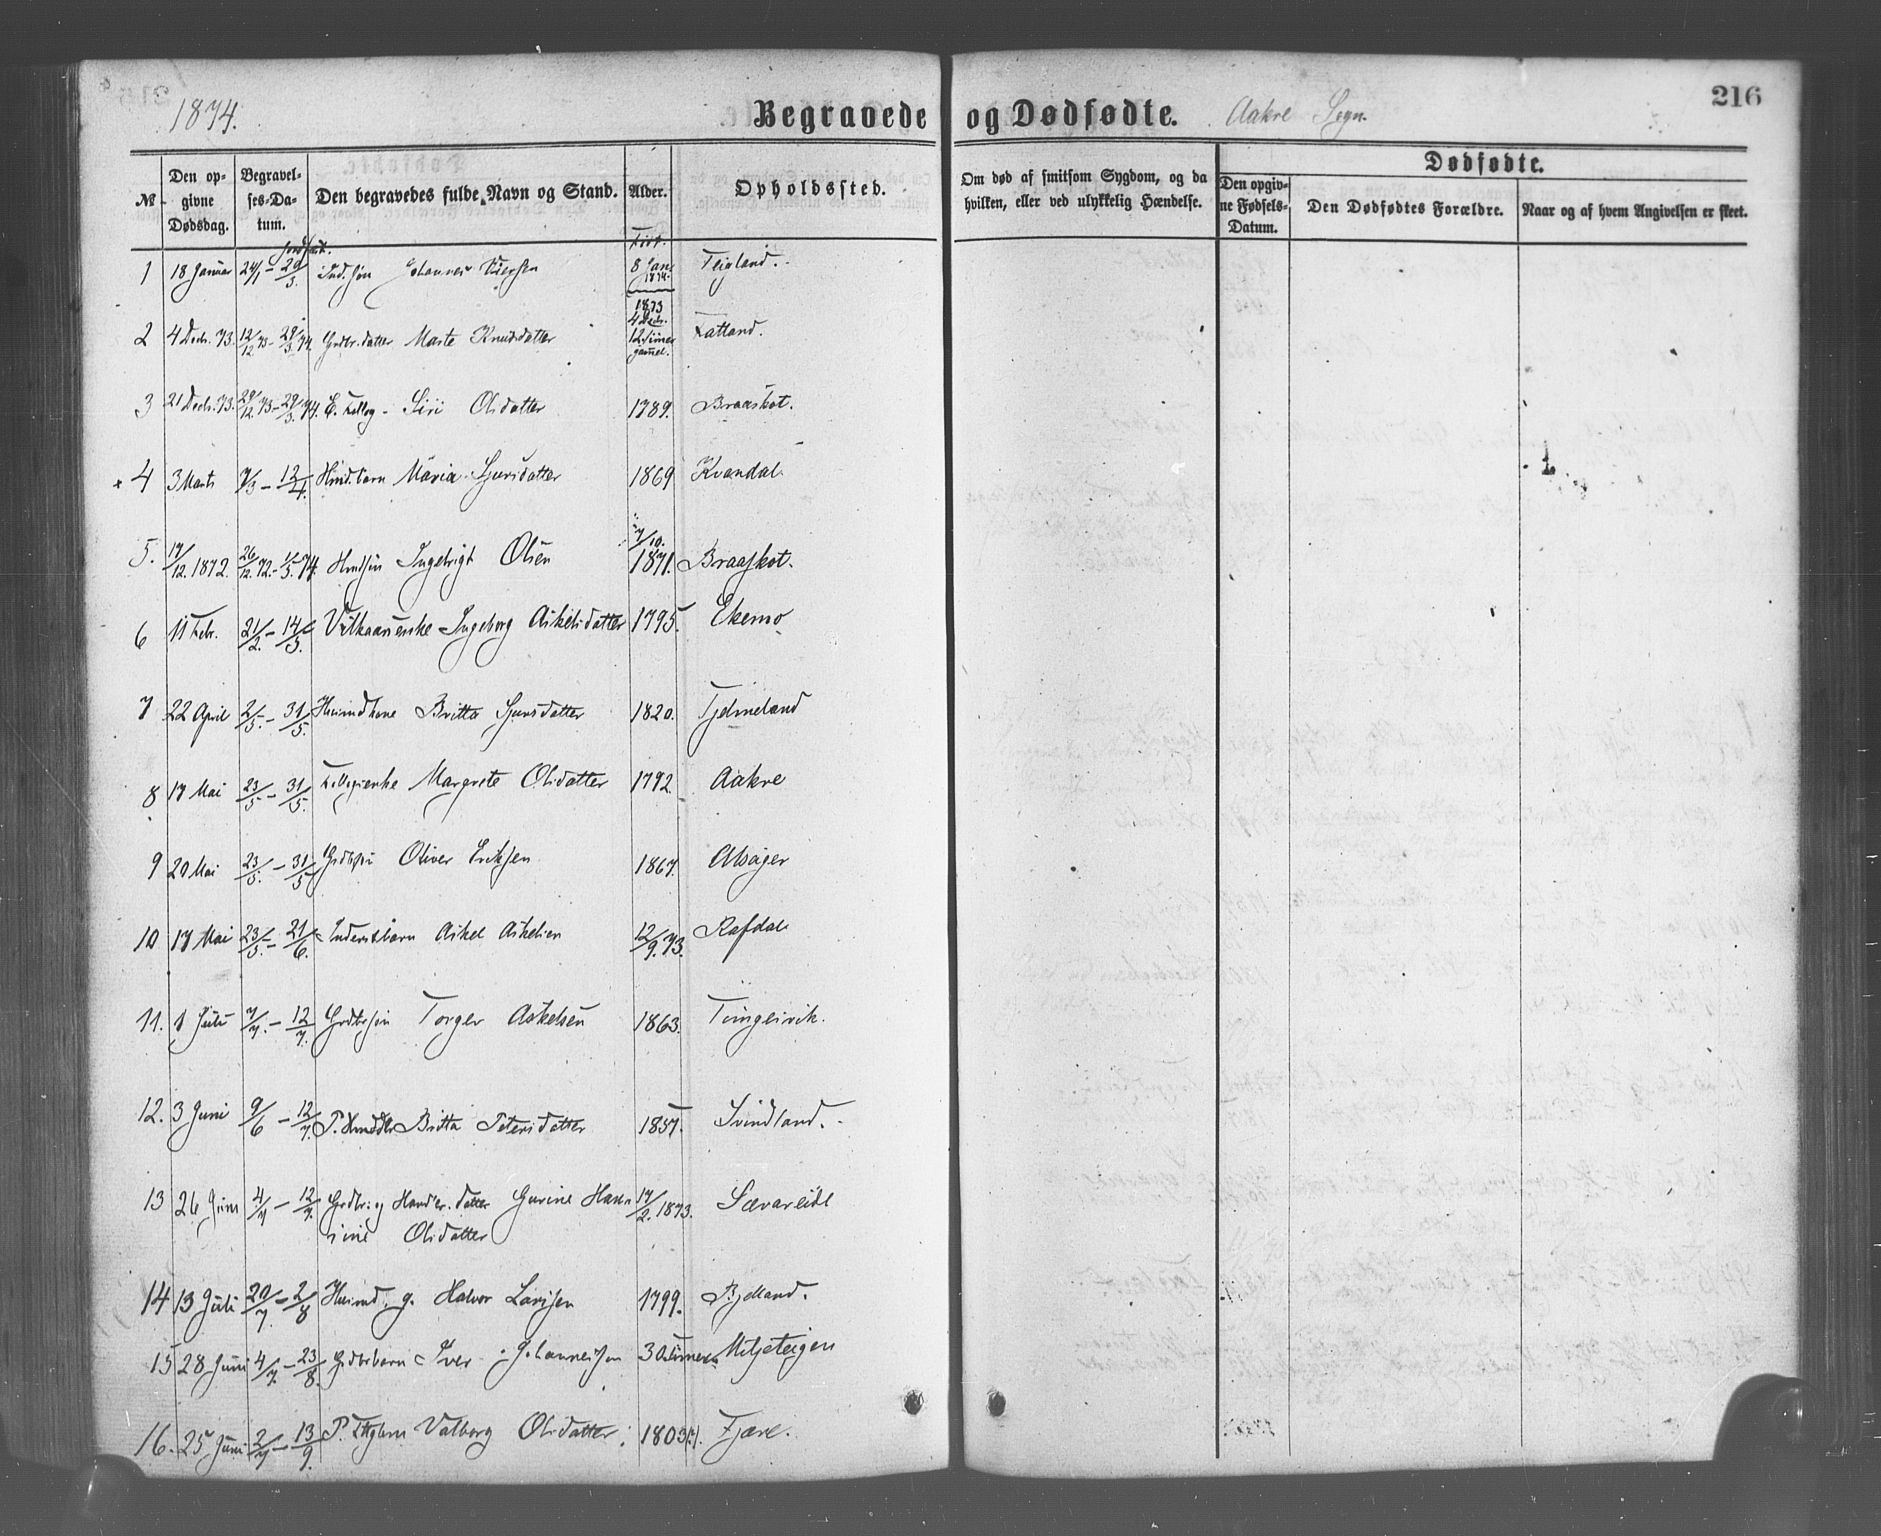 1874.
Begravede og Dødfødte.
Aakre Sogn.
216
№
Den opgivne Dødsdag.
Begravelses-Datum.
Den begravedes fulde Navn og Stand.
Alder.
Opholdssted.
Om død af smitsom Sygdom, og da hvilken, eller ved ulykkelig Hændelse.
Dødfødte.
Den opgivne Fødsels-Datum.
Den Dødfødtes Forældre.
Naar og af hvem Angivelsen er skeet.
Født.
1 18 Januar 24/1 - 29/3. Ind.søn Johannes 8 Jan. 1874. Teigland.
1873
2 4 Decbr. 73. 12/12 73 - 29/3. 74. Grdbr.datter Marte Knudsdatter 4 Decbr. 12 Timer gammel. Tatland.
3 21 Decbr. 73. 29/12. 73 - 29/3. 74. Siri Olsdatter 1789. Braaskot.
4 3 Marts 7/3 - 12/4. Hmd.barn Maria Sjursdatter 1869 Kvandal
7/10.
5. 17/12. 1872. 26/12. 72. - 1/5. 74. Hmdsøn Ingebrigt Olsen 1871. Braaskot.
6 11 Febr. 21/2. - 14/5. Vilkaarsenke Ingeborg Askelsdatter 1795. Ekemo
7 22 April 2/5. - 31/5. Huusmdkone Britta Sjursdatter 1820. Tjelmeland
8 17 Mai 23/5 - 31/5. Margrete Olsdatter 1792. Aakre
9 20 Mai 23/5. - 31/5 Grdbrsøn Oliver Eriksen 1867. Alsager
10 17 Mai 23/5. - 21/6. Inderstbarn Askel Askelsen 12/9. 73. Rafdal
11. 1 Juli 7/7. - 12/7. Grdbrsøn Torger Askelsen 1863. Tungesvik.
12. 3 Juni 9/6 - 12/7. Britta Petersdatter 1857. Svindland.
13 26 Juni 4/7 - 12/7. Grdbr. og Handler. datter Gurine Hansine Olsdatter 17/2. 1873. Sævareide
14 13 Juli 20/7. - 2/8 Huusmd. g. Halvor Larsen 1799. Bjelland.
15 28 Juni 4/7. - 23/8. Grdbrbarn Iver Johannessen 30 Timer Miljeteigen
16. 25 Juni 2/7 - 13/9. Valborg Olsdatter. 1803 Fjære.